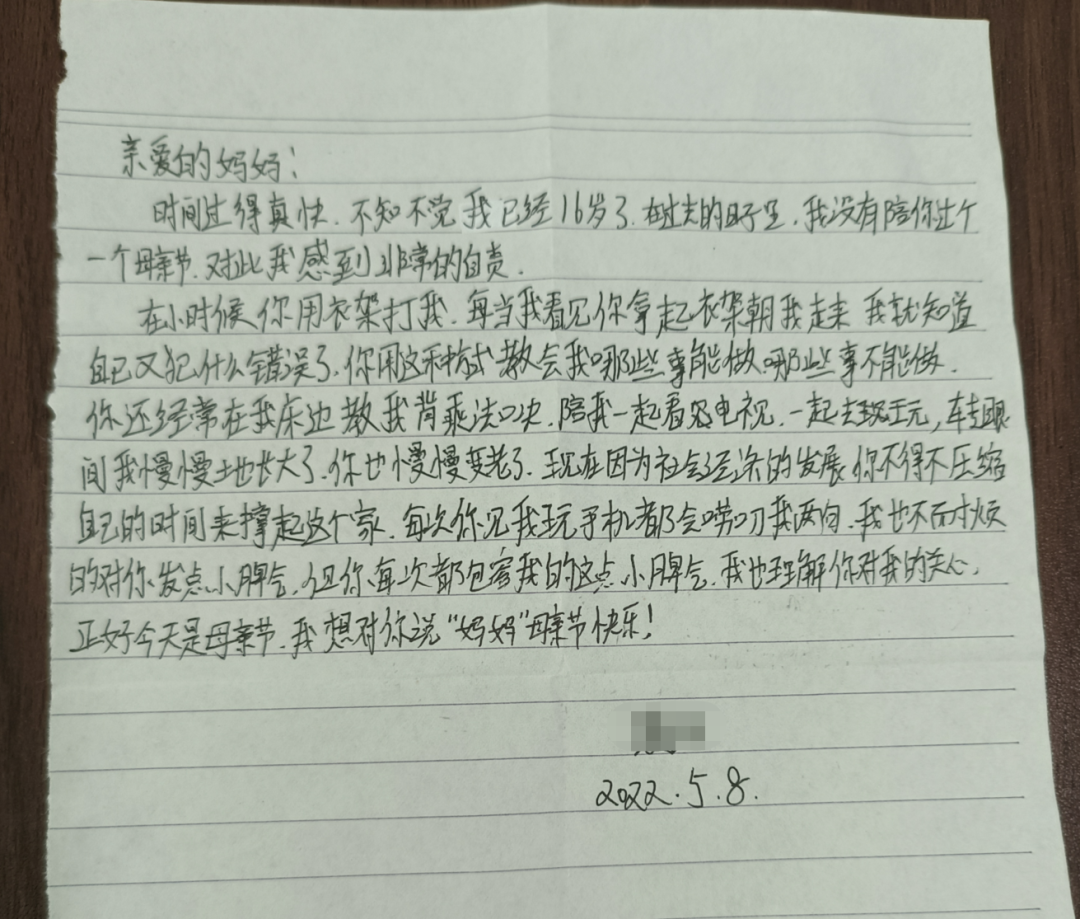 亲爱的妈妈：
时间过得真快.不知不觉我已经16岁了.在过去的日子里.我没有陪你过个
一个母亲节.对此我感到非常的自责.
在小时候你用衣架打我.每当我看见你拿起衣架朝我走来 我就知道
自己又犯什么错误了.你用这种方式教会我哪些事能做.哪些事不能做.
你还经常在我床边教我背乘法口决.陪我一起看电视.一起去玩,转眼
间我慢慢地长大了.你也慢慢变老了.现在因为社会经济的发展.你不得不压缩
自己的时间来撑起这个家.每次你见我玩手机都会唠叨我两句.我也不耐烦
的对你发点小脾气.但你每次都包容我的这点小脾气.我也理解你对我的关心.
正好今天是母亲节.我想对你说"妈妈"母亲节快乐!
2022.5.8.